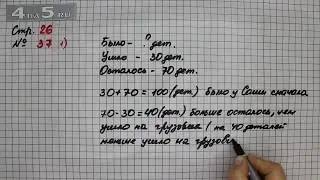 4DS.RU
Стр. 26
№ 37 1)
Было - ? дет.
Ушло - 30 дет.
Осталось - 70 дет.
30+70=100(дет.) было у Саши сначала
70-30=40(дет.) больше осталось, чем
ушло на грузовик / на 40 деталей
меньше ушло на грузов